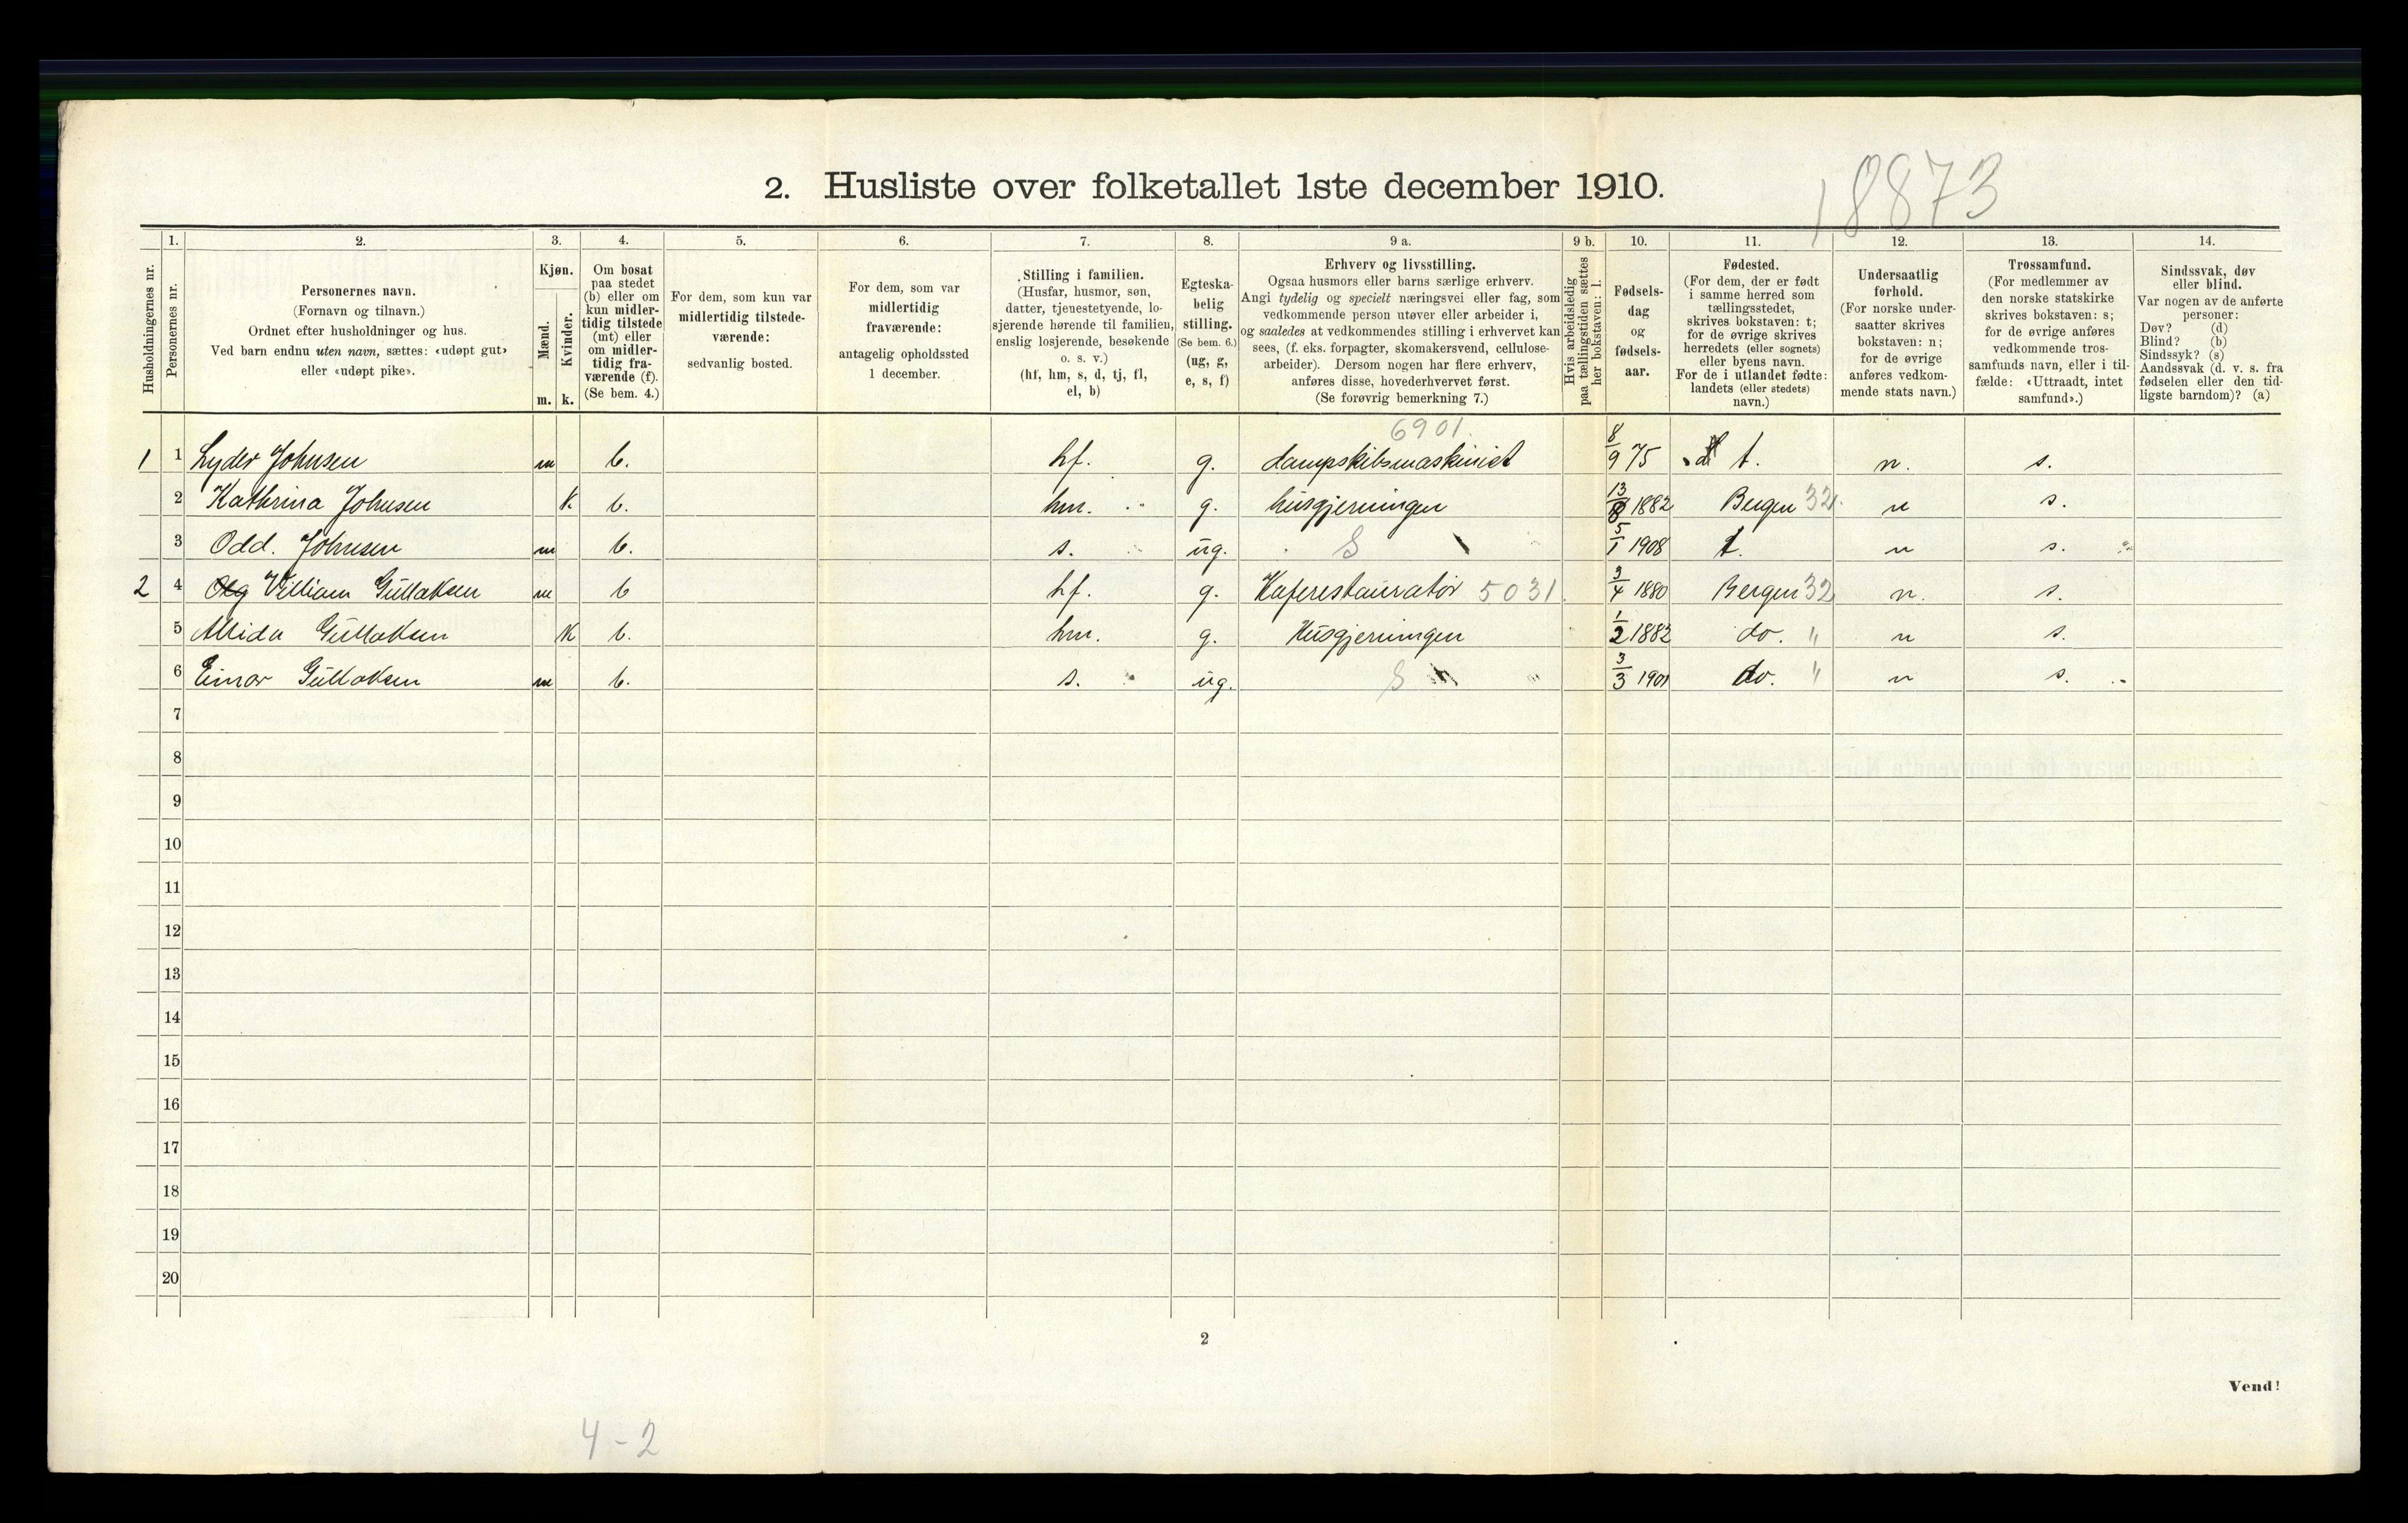 2. Husliste over folketallet 1ste december 1910.
18873
1. 2. 3. 4. 5. 6. 7. 8. 9 a. 9 b. 10. 11. 12. 13. 14.
Husholdningernes nr.
Personernes nr.
Personernes navn.
(Fornavn og tilnavn.)
Ordnet efter husholdninger og hus.
Ved barn endnu uten navn, sættes: «udøpt gut»
eller «udøpt pike».
Kjøn.
Mænd.
Kvinder.
m. k.
Om bosat
paa stedet
(b) eller om
kun midler-
tidig tilstede
(mt) eller
om midler-
tidig fra-
værende (f).
(Se bem. 4.)
For dem, som kun var
midlertidig tilstede-
værende:
sedvanlig bosted.
For dem, som var
midlertidig
fraværende:
antagelig opholdssted
1 december.
Stilling i familien.
(Husfar, husmor, søn,
datter, tjenestetyende, lo-
sjerende hørende til familien,
enslig losjerende, besøkende
o. s. v.)
(hf, hm, s, d, tj, fl,
el, b)
Egteska-
belig
stilling.
(Se bem. 6.)
(ug, g,
e, s, f)
Erhverv og livsstilling.
Ogsaa husmors eller barns særlige erhverv.
Angi tydelig og specielt næringsvei eller fag, som
vedkommende person utøver eller arbeider i,
og saaledes at vedkommendes stilling i erhvervet kan
sees, (f. eks. forpagter, skomakersvend, cellulose-
arbeider). Dersom nogen har flere erhverv,
anføres disse, hovederhvervet først.
(Se forøvrig bemerkning 7.)
Hvis arbeidsledig
paa tællingstiden sættes
her bokstaven: l.
Fødsels-
dag
og
fødsels-
aar.
Fødested.
(For dem, der er født
i samme herred som
tællingsstedet,
skrives bokstaven: t;
for de øvrige skrives
herredets (eller sognets)
eller byens navn.
For de i utlandet fødte:
landets (eller stedets)
navn.)
Undersaatlig
forhold.
(For norske under-
saatter skrives
bokstaven: n;
for de øvrige
anføres vedkom-
mende stats navn.)
Trossamfund.
(For medlemmer av
den norske statskirke
skrives bokstaven: s;
for de øvrige anføres
vedkommende tros-
samfunds navn, eller i til-
fælde: «Uttraadt, intet
samfund».)
Sindssvak, døv
eller blind.
Var nogen av de anførte
personer:
Døv? (d)
Blind? (b)
Sindssyk? (s)
Aandssvak (d. v. s. fra
fødselen eller den tid-
ligste barndom)? (a)
6901.
1 1 Lyder Johnsen m b. hf. g. dampskibsmaskinist 8/9 75 t. n. s.
2 Kathrina Johnsen k b. hm. g. husgjerningen 13/8 1882 Bergen 32. n s.
3 Odd. Johnsen m b. s. ug. S 5/1 1908 t. n s.
2 4 Olg Villiam Gullaksen m b hf. g. Kaferestauratør 5031. 3/4 1880 Bergen 32 n. s.
5 Allida Gullaksen k b. hm. g. Husgjerningen 1/2 1882 do. " n s.
6 Einar Gullaksen m b. s. ug. S 3/3 1901 do. " n s.
7
8
9
10
11
12
13
14
15
16
17
18
19
20
2
Vend!
4-2